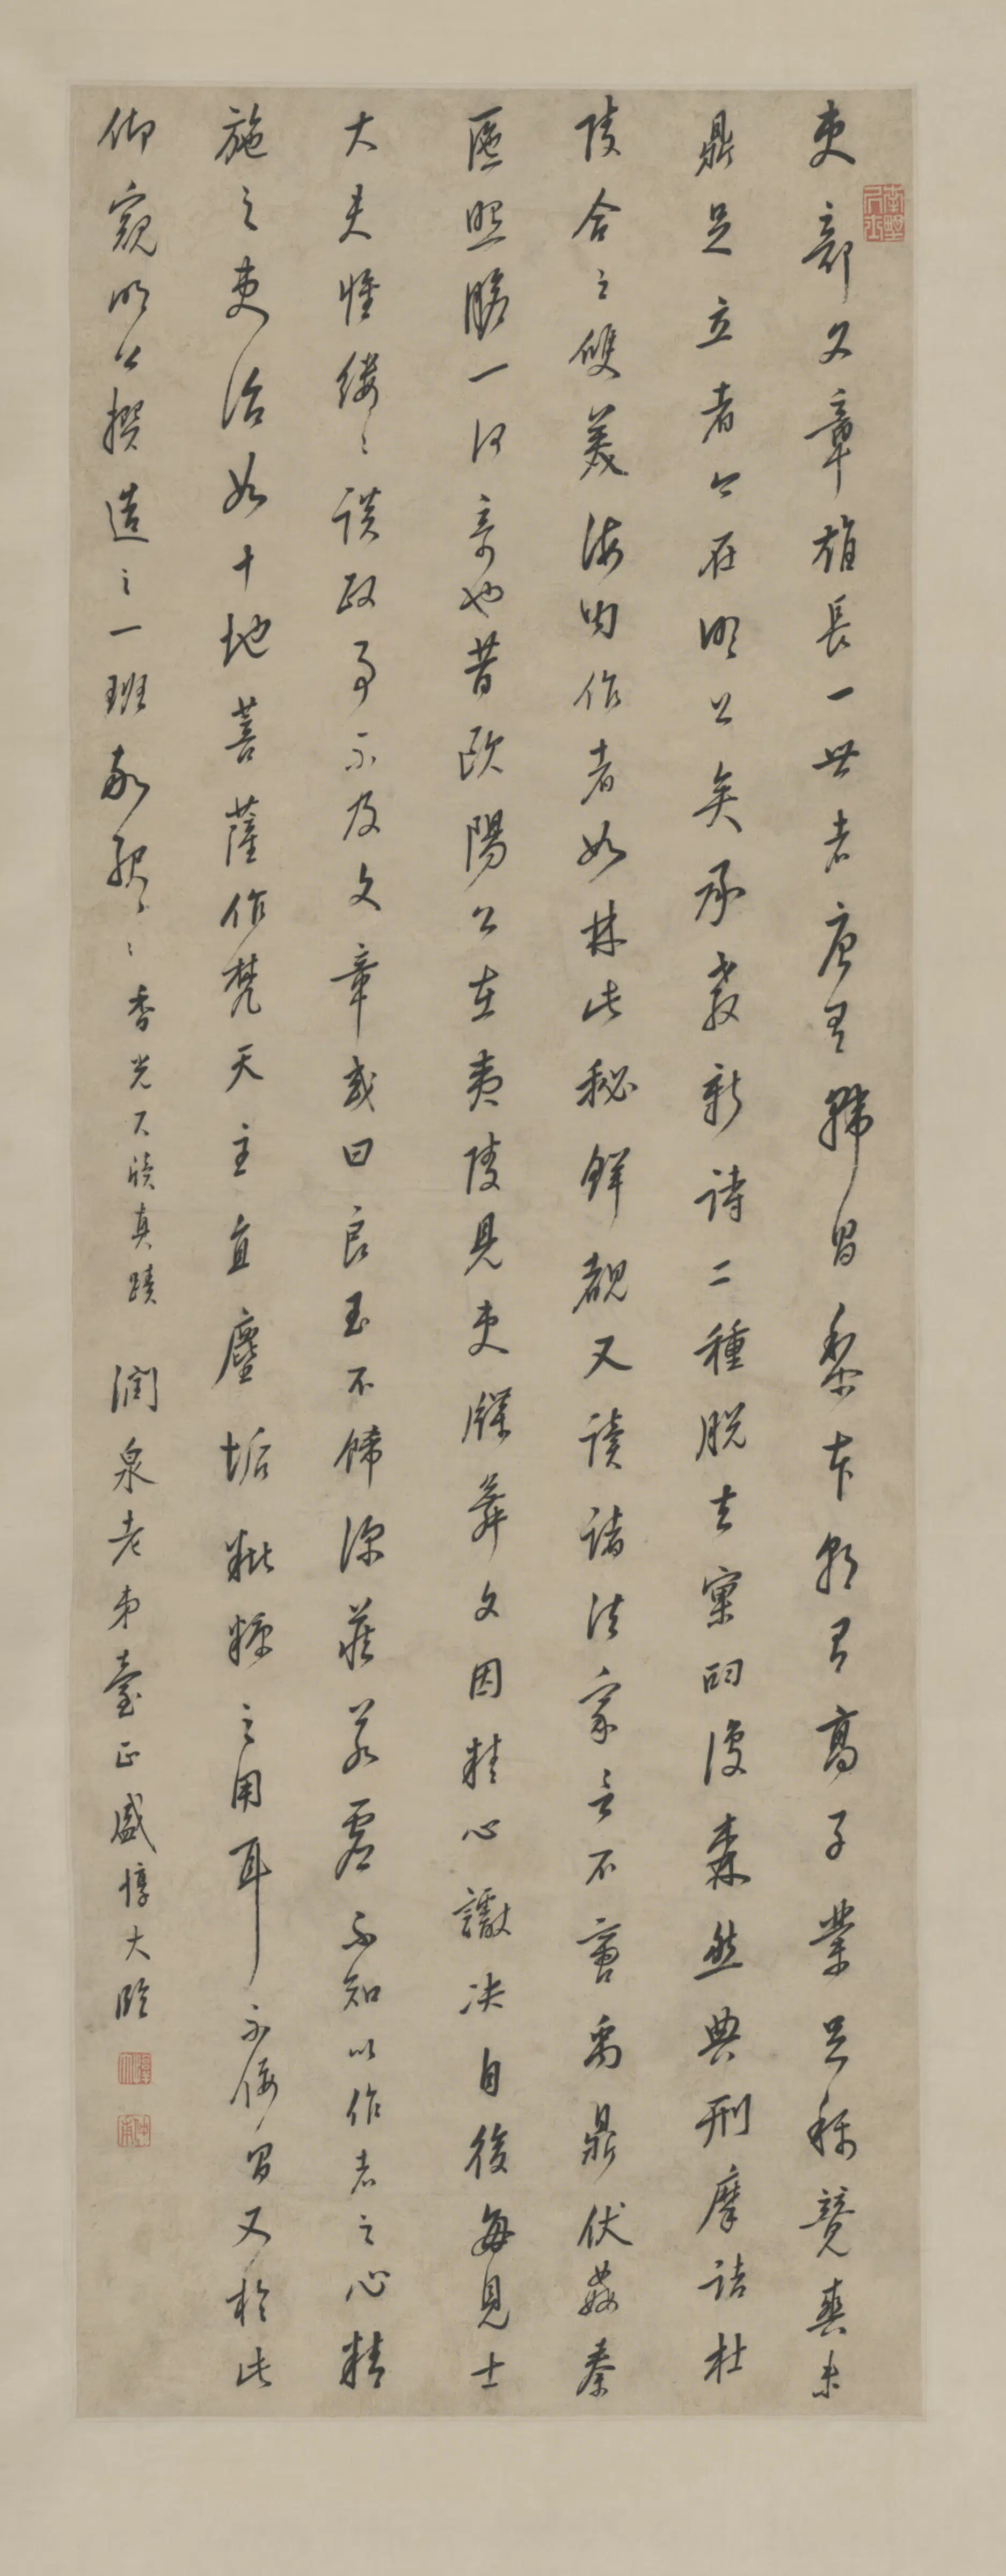 吏部文章雄長一世者唐有韓昌黎本朝有高子業足稱競爽未
鼎足立者今在明公矣承教新詩二種脫去窠臼復森然典刑摩詰杜
陵合之雙美海內作者如林此秘鮮覩又讀諸法家言不啻禹鼎伏姦秦
匳照膽一何奇也昔歐陽公在夷陵見吏牒舞文因精心讞決自後每見士
大夫惟縷〻談政事不及文章或曰良玉不飾深藏若虛不知以作者之心精
施之吏治如十地菩薩作梵天主直塵垢粃糠之用耳不佞昌又於此
仰窺明公撰造之一班敬服〻〻香光尺牘真蹟 潤泉老弟臺正盛惇大臨